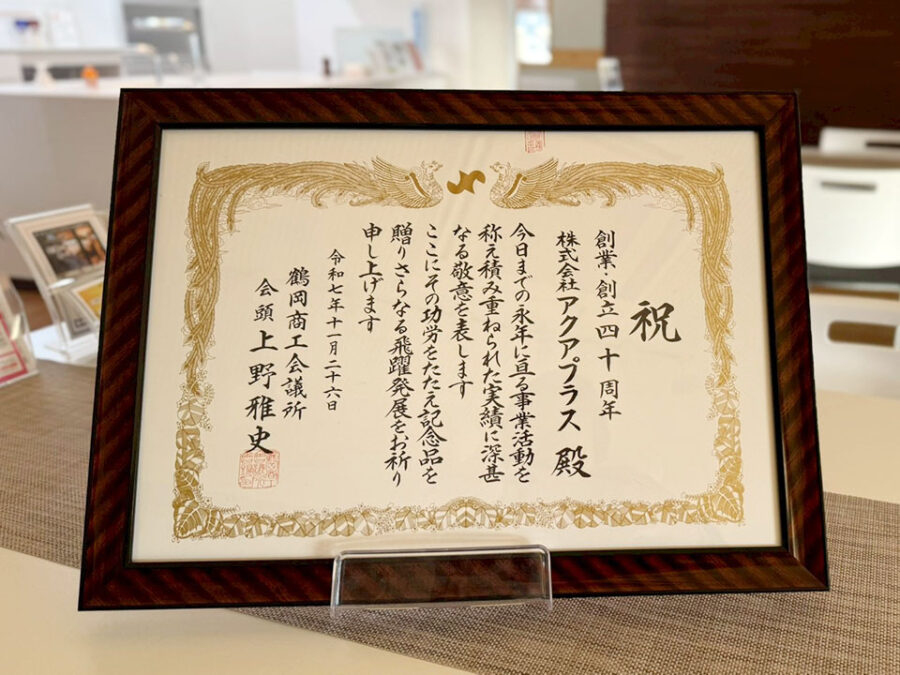 祝
創業・創立四十周年
株式会社アクアプラス 殿
今日までの永年に亘る事業活動を
称え積み重ねられた実績に深甚
なる敬意を表します
ここにその功労をたたえ記念品を
贈りさらなる飛躍発展をお祈り
申し上げます
令和七年十一月二十六日
鶴岡商工会議所
会頭 上野雅史